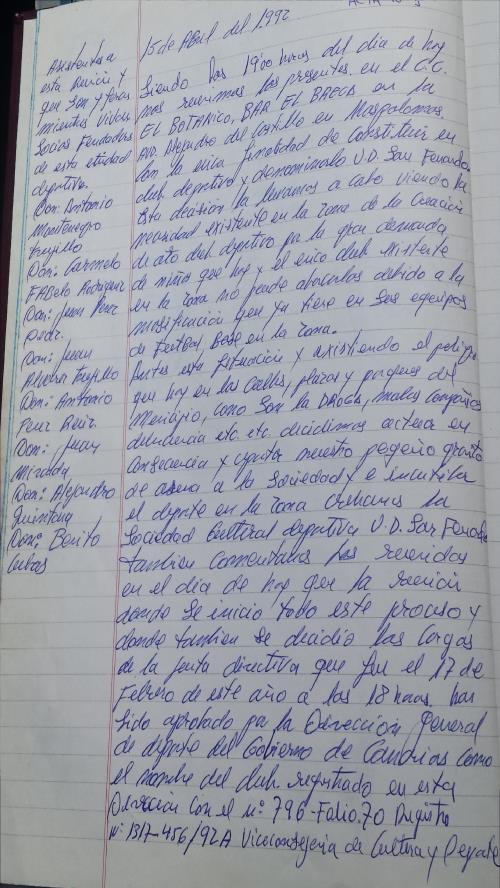 ACTA
15 de Abril del 1992
Asistentes a
esta Reunión y
que son y feron
mientras vivan
Socios Fundadores
de esta entidad
deportiva.
Don: Antonio
Montenegro
Trujillo
Don: Carmelo
Fabelo Rodriguez
Don: Juan Perez
Don: Juan
Alvarez Trujillo
Don: Antonio
Perez Ruiz.
Don: Juan
Miranda
Don: Alejandro
Quintana
Don: Benito
Cubas
Siendo las 19'00 horas del día de hoy
nos reunimos los presentes en el C.C.
EL BOTANICO, BAR EL BAEGS en la
Av. Alejandro del Castillo en Maspalomas.
con la unica finalidad de Constituir un
club deportivo y denominarlo U.D. San Fernando.
Esta decisión la llevamos a cabo viendo la
necesidad existente en la zona de la Creación
de otro club deportivo por la gran demanda
de niños que hay y el unico club existente
en la zona no puede abarcarlos debido a la
masificación que ya tiene en sus equipos
de Futbol Base en la Zona.
Antes esta situación y existiendo el peligro
que hay en las Calles, plazas y parques del
Municipio, como son la DROGA, malas compañias
delincuencia etc. etc. decidimos actuar en
consecuencia y aportar nuestro pegeño granito
de arena a la Sociedad y e incentivar
el deporte en la Zona creamos la
Sociedad Cultural deportiva U.D. San Fernando
tambien comentamos los reunidos
en el día de hoy que la reunión
donde se inicio todo este proceso y
donde tambien se decidio los Cargos
de la junta directiva que fue el 17 de
Febrero de este año a las 18 horas. has
sido aprobado por la Dirección General
de deporte del Gobierno de Canarias como
el nombre del club registrado en esta
Dirección con el nº 796-Folio.70 Registro
nº 1317-456/92A Viceconsejeria de Cultura y Deporte